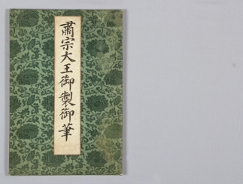 肅宗大王御製御筆